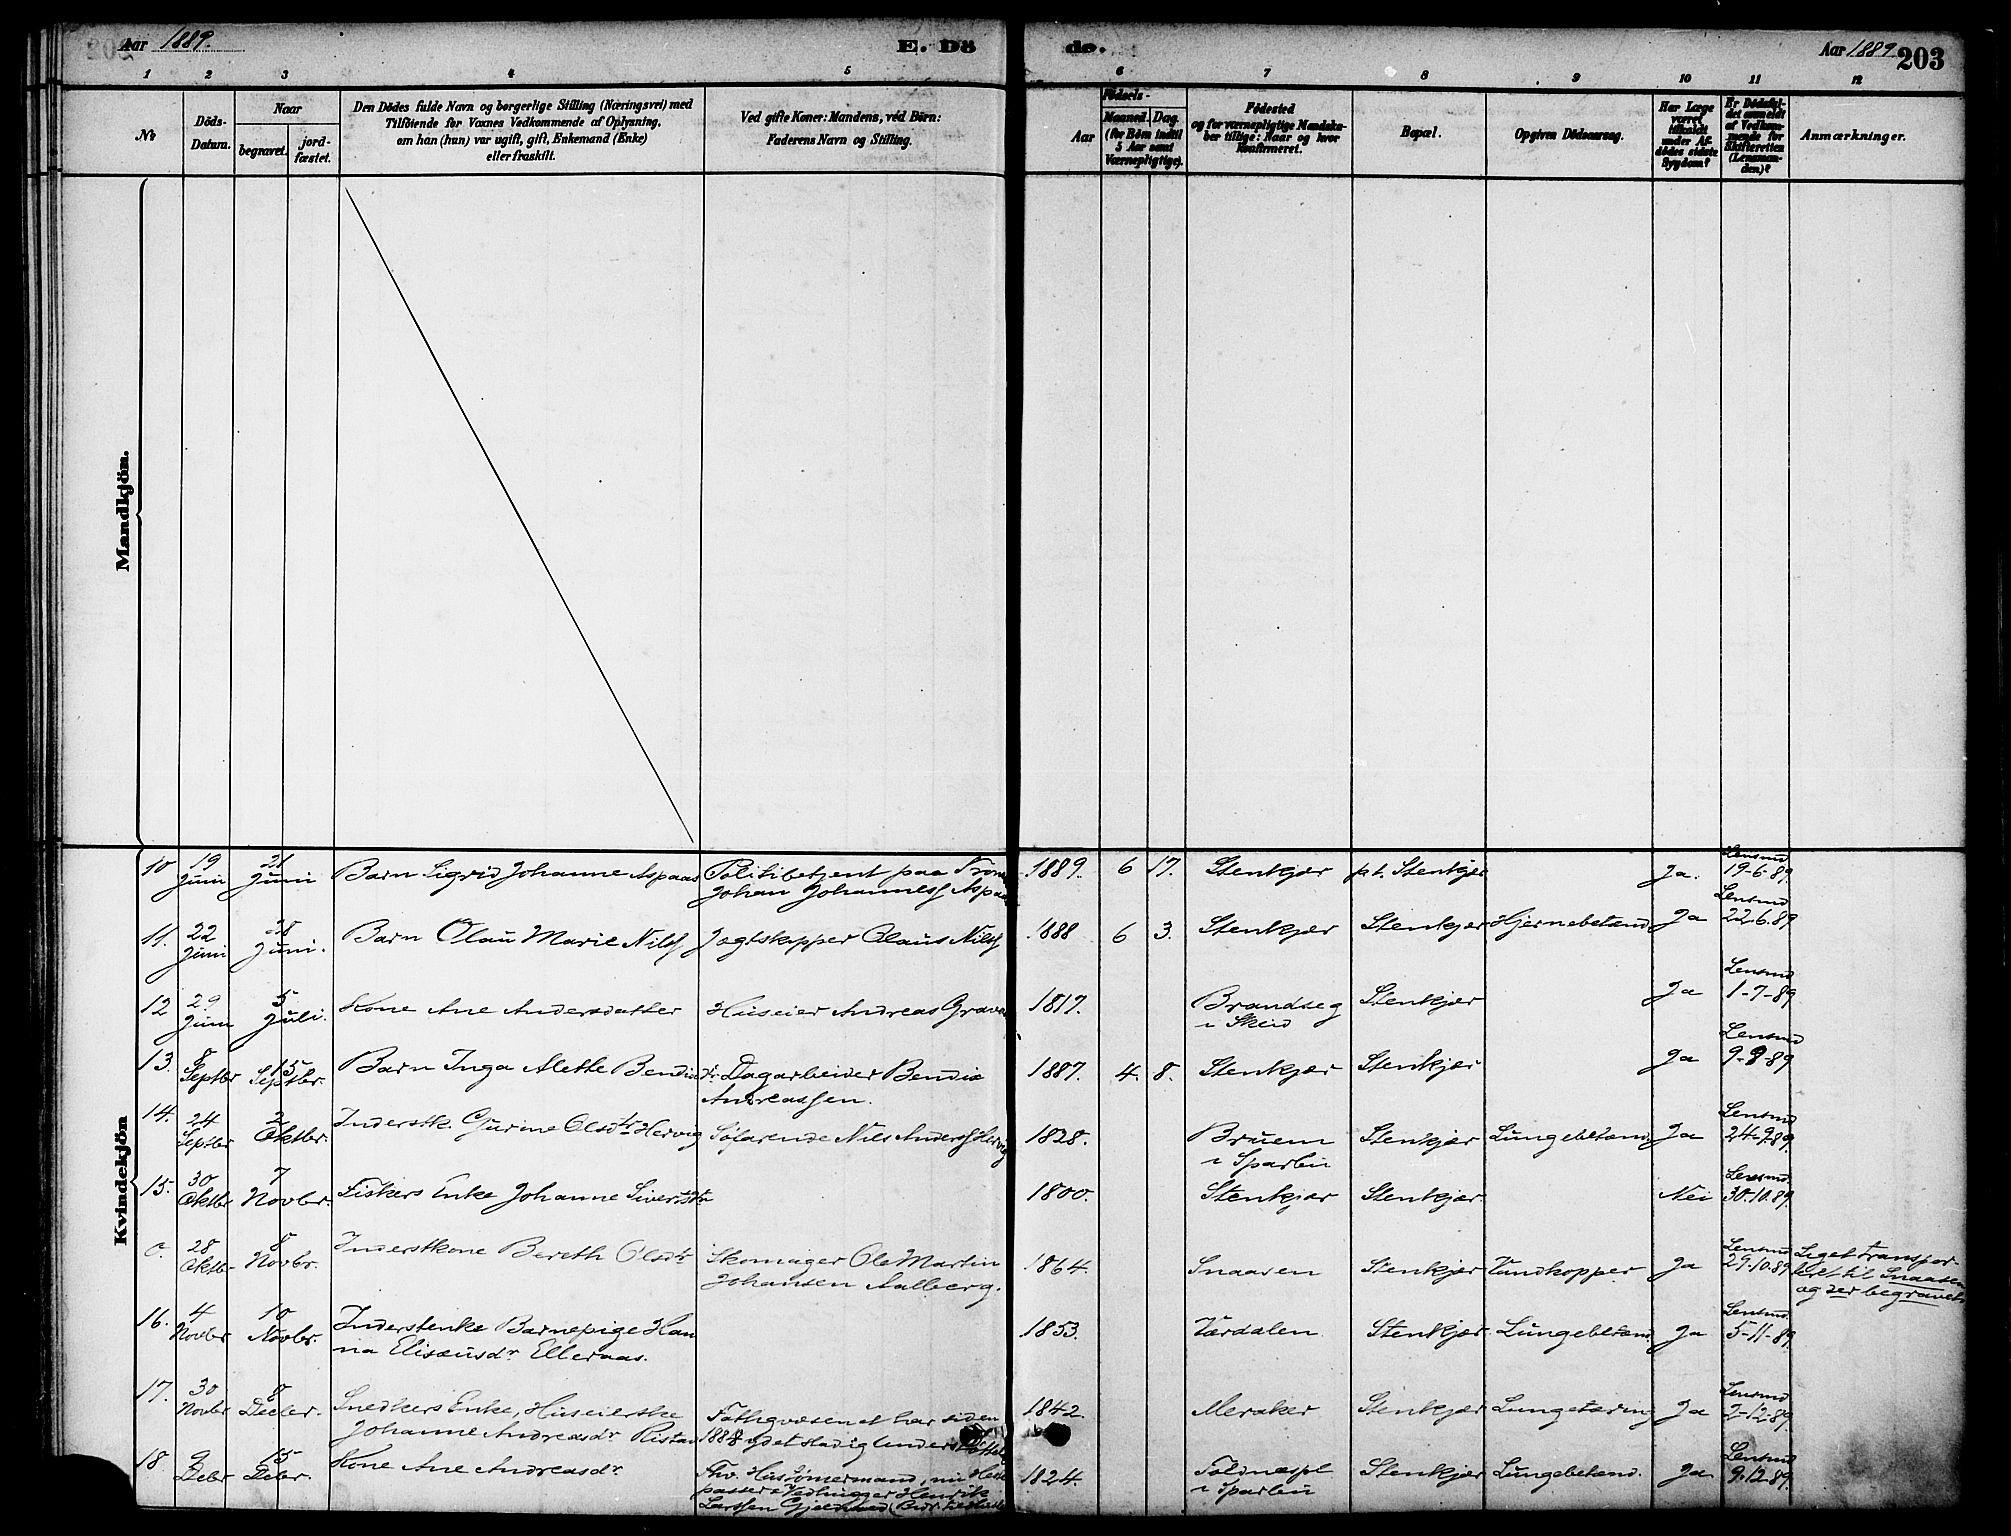 Aar 1889. E. Dö de. Aar 1889. 203
1 2 3 4 5 6 7 8 9 10 11 12
No
Döds-Datum.
Naar
begravet. jord-fæstet.
Den Dödes fulde Navn og borgerlige Stilling (Næringsvei) med
Tilföiende for Voxnes Vedkommende af Oplysning,
om han (hun) var ugift, gift, Enkemand (Enke)
eller fraskilt.
Ved gifte Koner: Mandens, ved Börn:
Faderens Navn og Stilling.
Födsels-
Aar Maaned. Dag.
(for Börn indtil
5 Aar samt
Værnepligtige).
Födested
og for værnepligtige Mandska-
ber tillige: Naar og hvor
Konfirmeret.
Bopæl.
Opgiven Dödsaarsag.
Har Læge
været
tilkaldt
under Af-
dödes sidste
Sygdom?
Er Dödsfal-
det anmeldt
af Vedkom-
mende for
Skifteretten
(Lensman-
den)?
Anmærkninger.
Mandkjön.
Kvindekjön
10 19 Juni 21 Juni Barn Sigrid Johanne Aspaas Politibetjent paa
Johan Johanness Aspaas 1889. 6 17. Stenkjær p.t. Stenkjær Ja. Lensmd 19-6-89.
11. 22 Juni 28 Juni. Barn Olau Marie Nilss Jagtskipper Olaus Nilss 1888 6 3. Stenkjær Stenkjær Hjernebetænd. Ja Lensmd 22-6-89
12 29 Juni 5 Juli. Kone Ane Andersdatter Huseier Andreas 1817. Brandseg
i Skeid Stenkjær Ja Lensmd 1-7-89.
13. 8 Septbr 15 Septbr. Barn Inga Alette Bendixdr. Dagarbeider Bendix
Andreassen. 1887. 4. 8. Stenkjær Stenkjær Ja Lensmd 9-9-89
14. 24 Septbr 2 Oktbr. Inderstk. Gurine Olsdtr Hervig Söfarende Nils Anderss Hervig 1828. Bruem
i Sparbu Stenkjær Lungebetænd. Ja Lensmd 24-9-89.
15. 30 Oktbr 7 Novbr. Fiskers Enke Johanne Sivertsdtr 1800. Stenkjær Stenkjær. Nei Lensmd. 30.10.89.
0. 28 Oktbr 8 Novbr. Inderstkone Bereth Olsdtr Skomager Ole Martin
Johansen Aalberg. 1864. Snaasen Stenkjær Vandkopper Ja Lensmd 29.10.89 Liget transpor-
teret til Snaasen
og der begravet.
16. 4 Novbr 10 Novbr. Inderstenke Barnepige Han
na Elisæusdr. Elleraas. 1853. Værdalen Stenkjær Lungebetænd. Ja Lensmd. 5-11-89.
17. 30 Novbr 8 Decbr. Snedkers Enke, Huseierske
Johanne Andreasdr. Fattigvæsenet har siden
1884 ydet stadig 1842. Meraker Stenkjær Lungetæring Ja Lensmd 2-12-89.
18. 9 Debr 15 Debr. Kone Ane Andreasdr. Fhv. Hustömermand, nu
passer & Vedhugger Henrik
Larssen 1824. Foldnæspl
i Sparbu Stenkjær Lungebetænd. Ja. Lensmd 9.12.89.